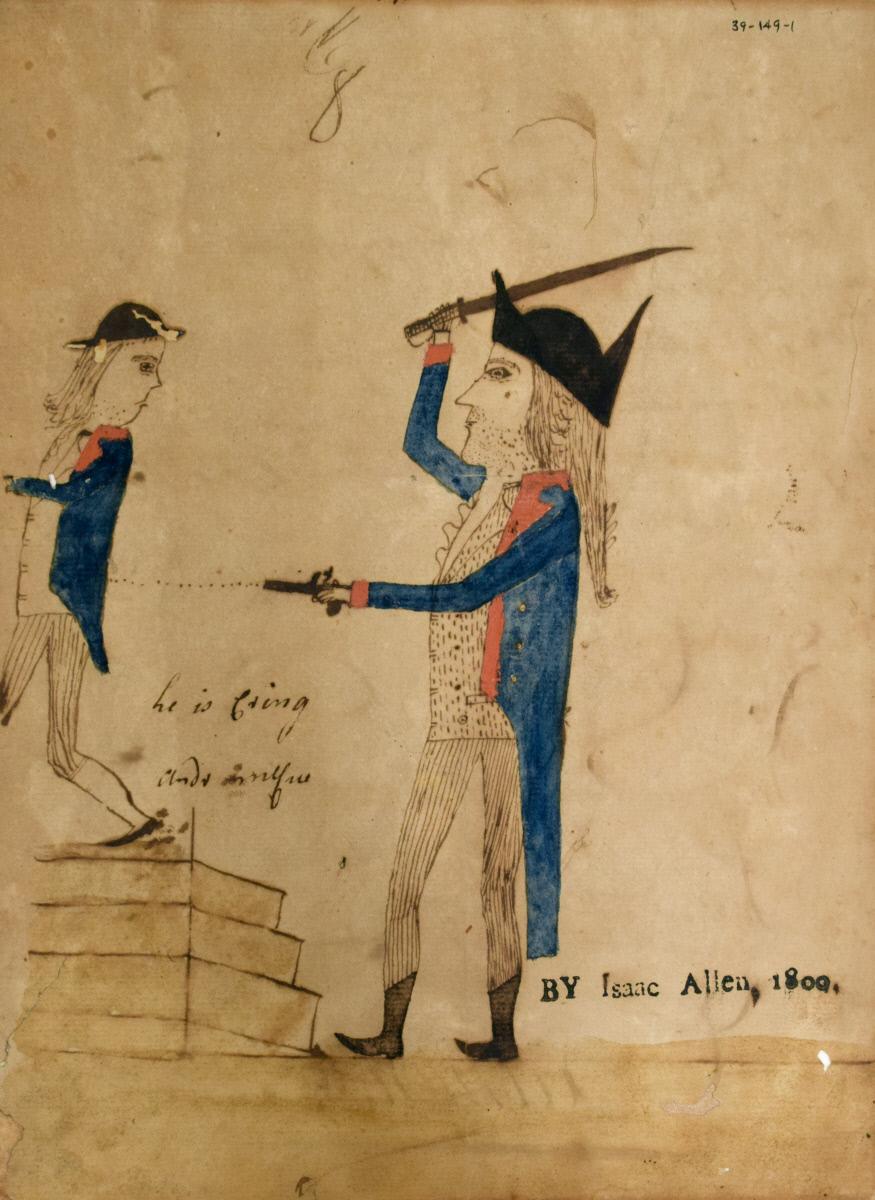 39-149-1
he is Cring
and
BY Isaac Allen, 1800.